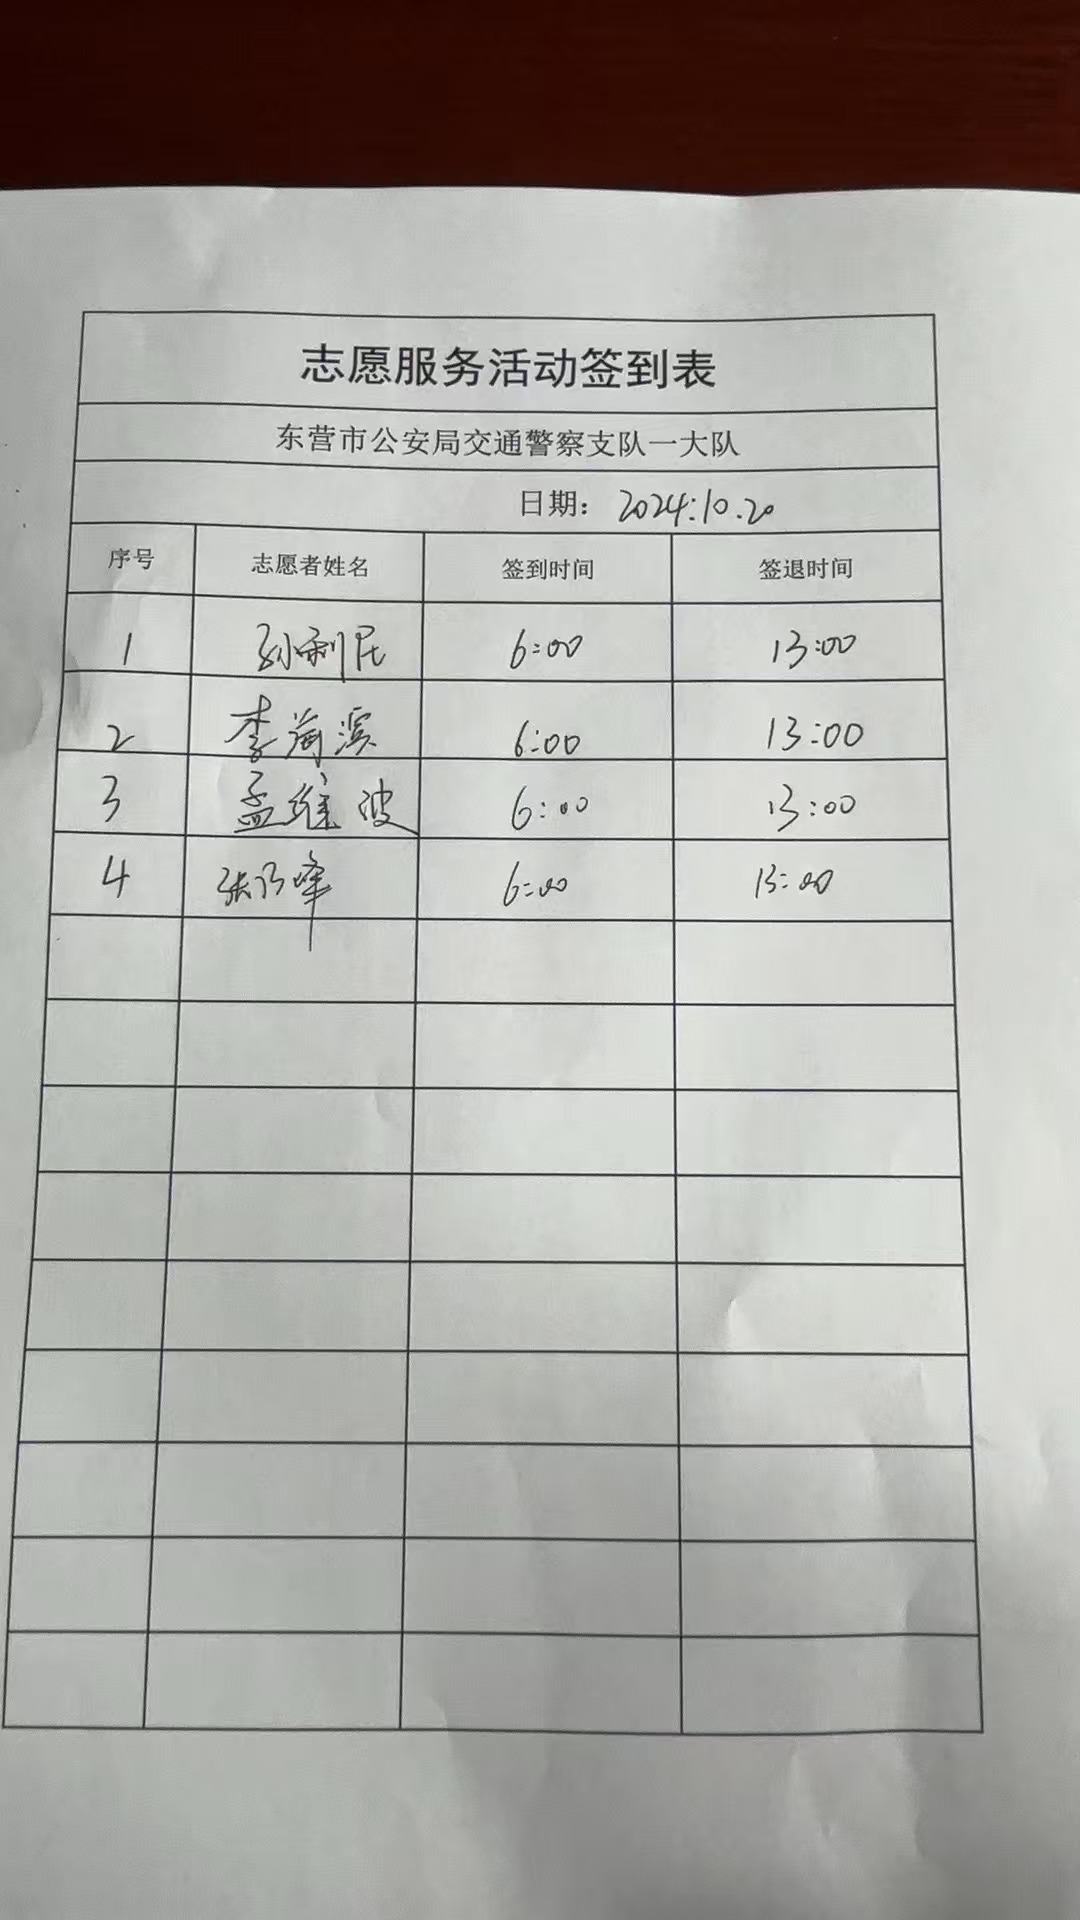 志愿服务活动签到表
东营市公安局交通警察支队一大队
日期： 2024.10.20
序号 志愿者姓名 签到时间 签退时间
1 孙利民 6:00 13:00
2 李海滨 6:00 13:00
3 孟维波 6:00 13:00
4 张乃峰 6:00 13:00